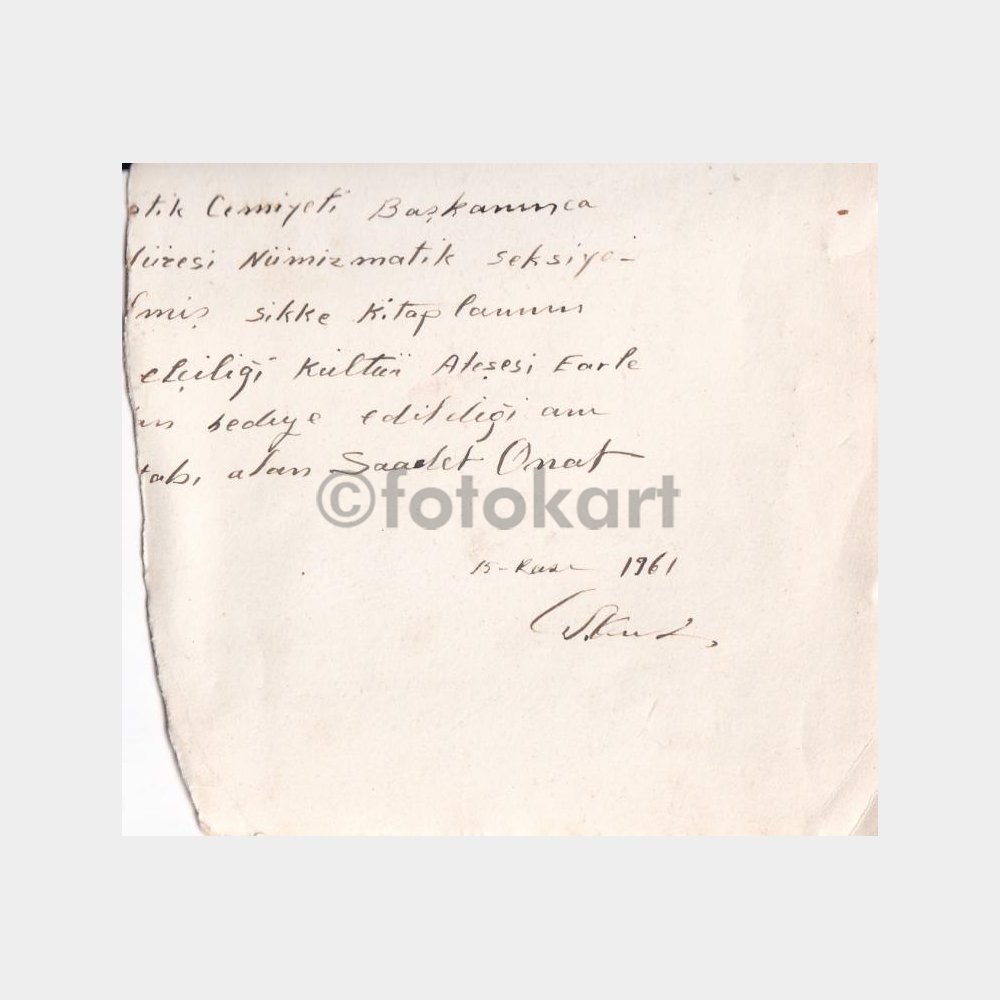 tik Cemiyeti Başkanınca
üresi Nümizmatik seksiyo-
miş sikke Kitaplarının
elçiliği Kültür Ateşesi Earle
an hediye edildiği anı
tabı alan Saadet Onat
©fotokart
15- 1961